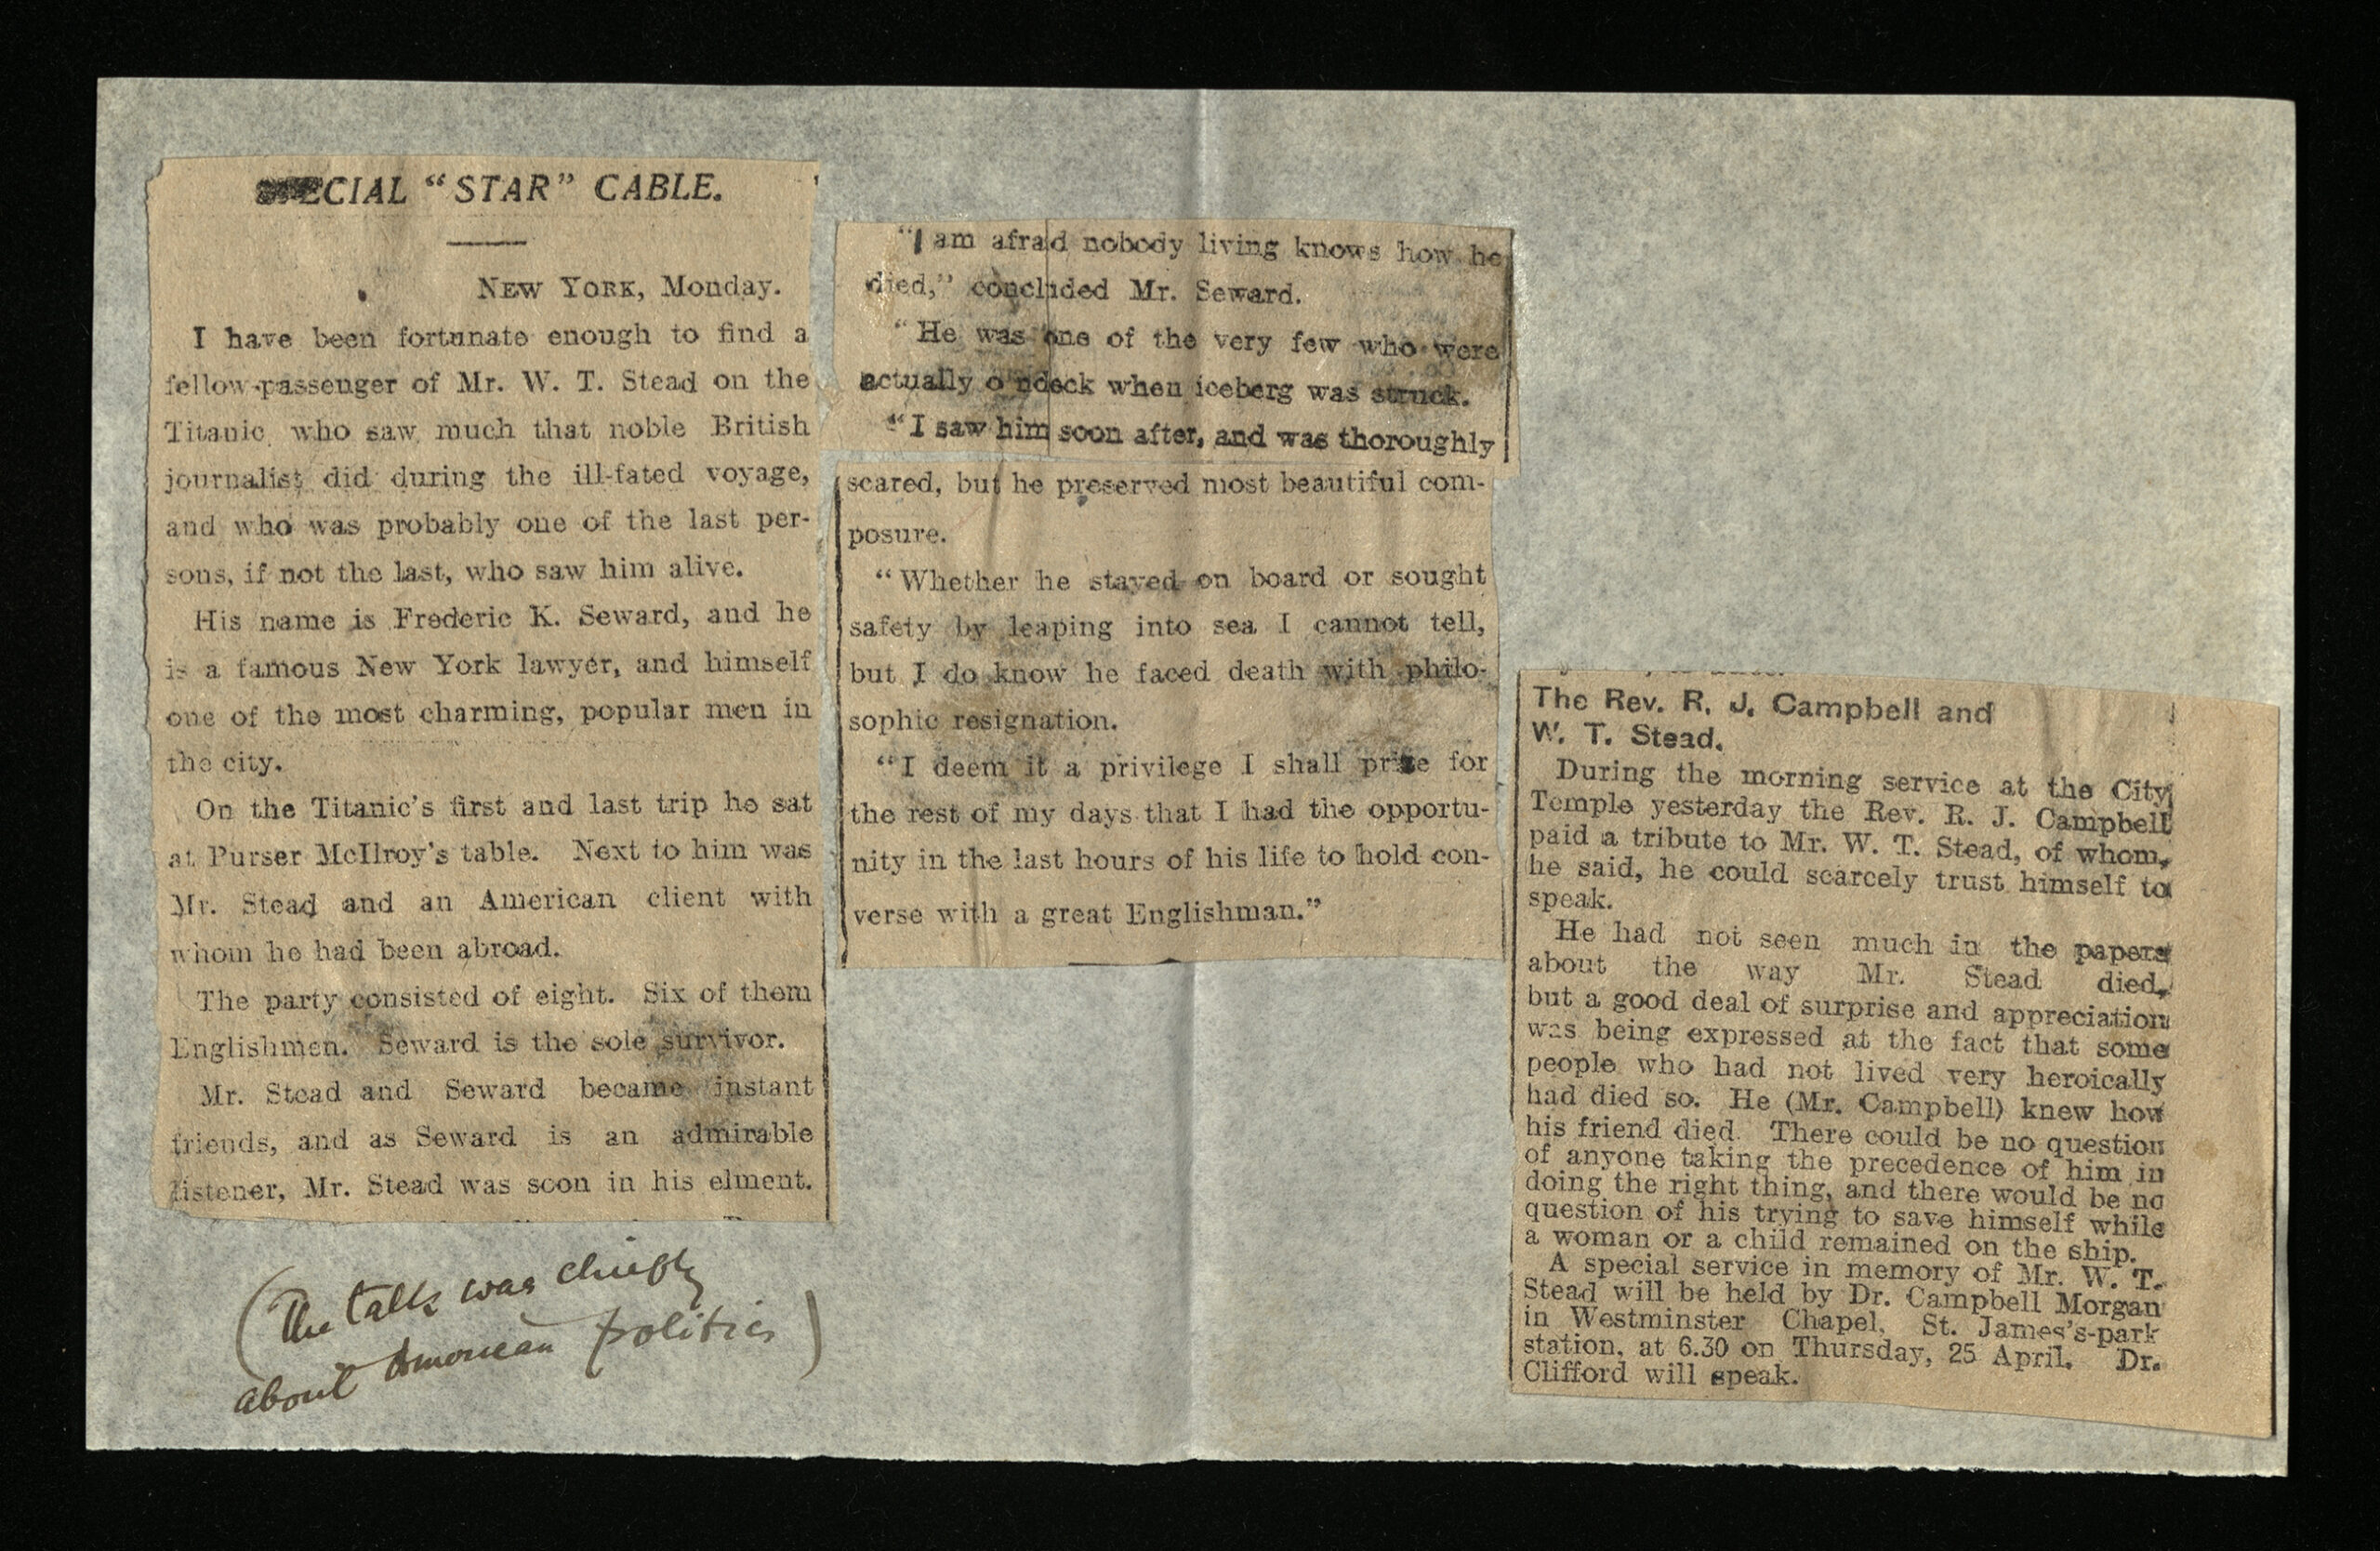 SPECIAL "STAR" CABLE.
NEW YORK, Monday.
I have been fortunate enough to find a
fellow-passenger of Mr. W. T. Stead on the
Titanic, who saw much that noble British
journalist did during the ill-fated voyage,
and who was probably one of the last per-
sons, if not the last, who saw him alive.
His name is Frederic K. Seward, and he
is a famous New York lawyer, and himself
one of the most charming, popular men in
the city.
On the Titanic's first and last trip he sat
at Purser McIlroy's table. Next to him was
Mr. Stead and an American client with
whom he had been abroad.
The party consisted of eight. Six of them
Englishmen. Seward is the sole survivor.
Mr. Stead and Seward became instant
friends, and as Seward is an admirable
listener, Mr. Stead was soon in his elment.
(The talk was chiefly
about American politics)
"I am afraid nobody living knows how he
died," concluded Mr. Seward.
"He was one of the very few who were
actually o ndeck when iceberg was struck.
"I saw him soon after, and was thoroughly
scared, but he preserved most beautiful com-
posure.
"Whether he stayed on board or sought
safety by leaping into sea I cannot tell,
but I do know he faced death with philo-
sophic resignation.
"I deem it a privilege I shall prize for
the rest of my days that I had the opportu-
nity in the last hours of his life to hold con-
verse with a great Englishman."
The Rev. R. J. Campbell and
W. T. Stead.
During the morning service at the City
Temple yesterday the Rev. R. J. Campbell
paid a tribute to Mr. W. T. Stead, of whom,
he said, he could scarcely trust himself to
speak.
He had not seen much in the papers
about the way Mr. Stead died,
but a good deal of surprise and appreciation
was being expressed at the fact that some
people who had not lived very heroically
had died so. He (Mr. Campbell) knew how
his friend died. There could be no question
of anyone taking the precedence of him in
doing the right thing, and there would be no
question of his trying to save himself while
a woman or a child remained on the ship.
A special service in memory of Mr. W. T.
Stead will be held by Dr. Campbell Morgan
in Westminster Chapel, St. James's-park
station, at 6.30 on Thursday, 25 April. Dr.
Clifford will speak.